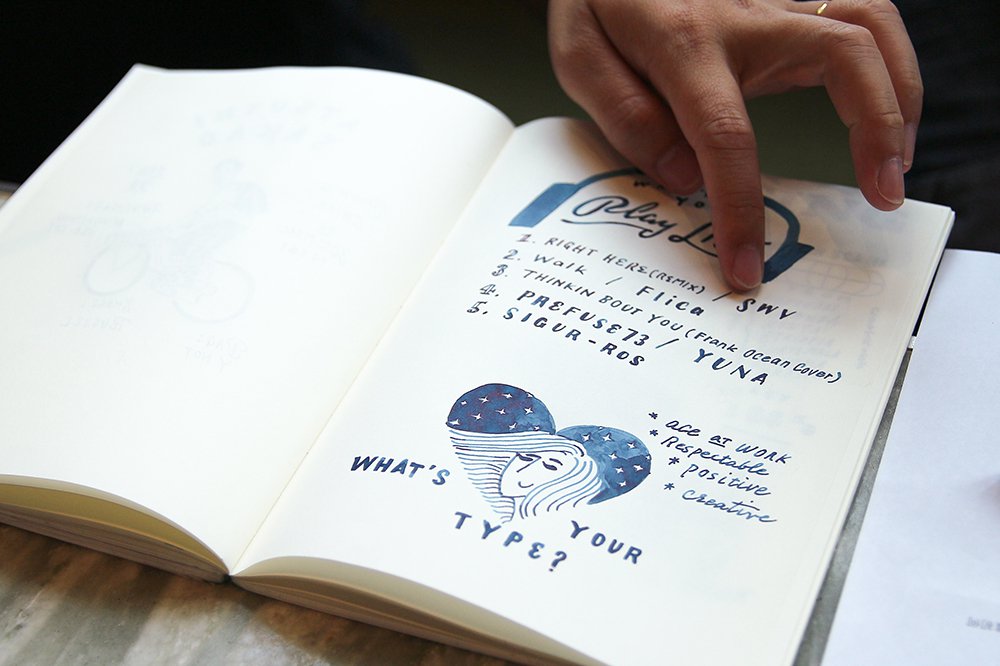 Play Li
1. RIGHT HERE (REMIX) / SWV
2. Walk / Flica
3. THINKIN BOUT YOU (Frank Ocean Cover)
4. PREFUSE73 / YUNA
5. SIGUR-ROS
* ace at WORK
* Respectable
* Positive
* creative
WHAT'S
YOUR
TYPE?